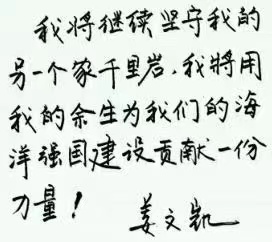 我将继续坚守我的
另一个家千里岩，我将用
我的余生为我们的海
洋强国建设贡献一份
力量！ 姜文凯